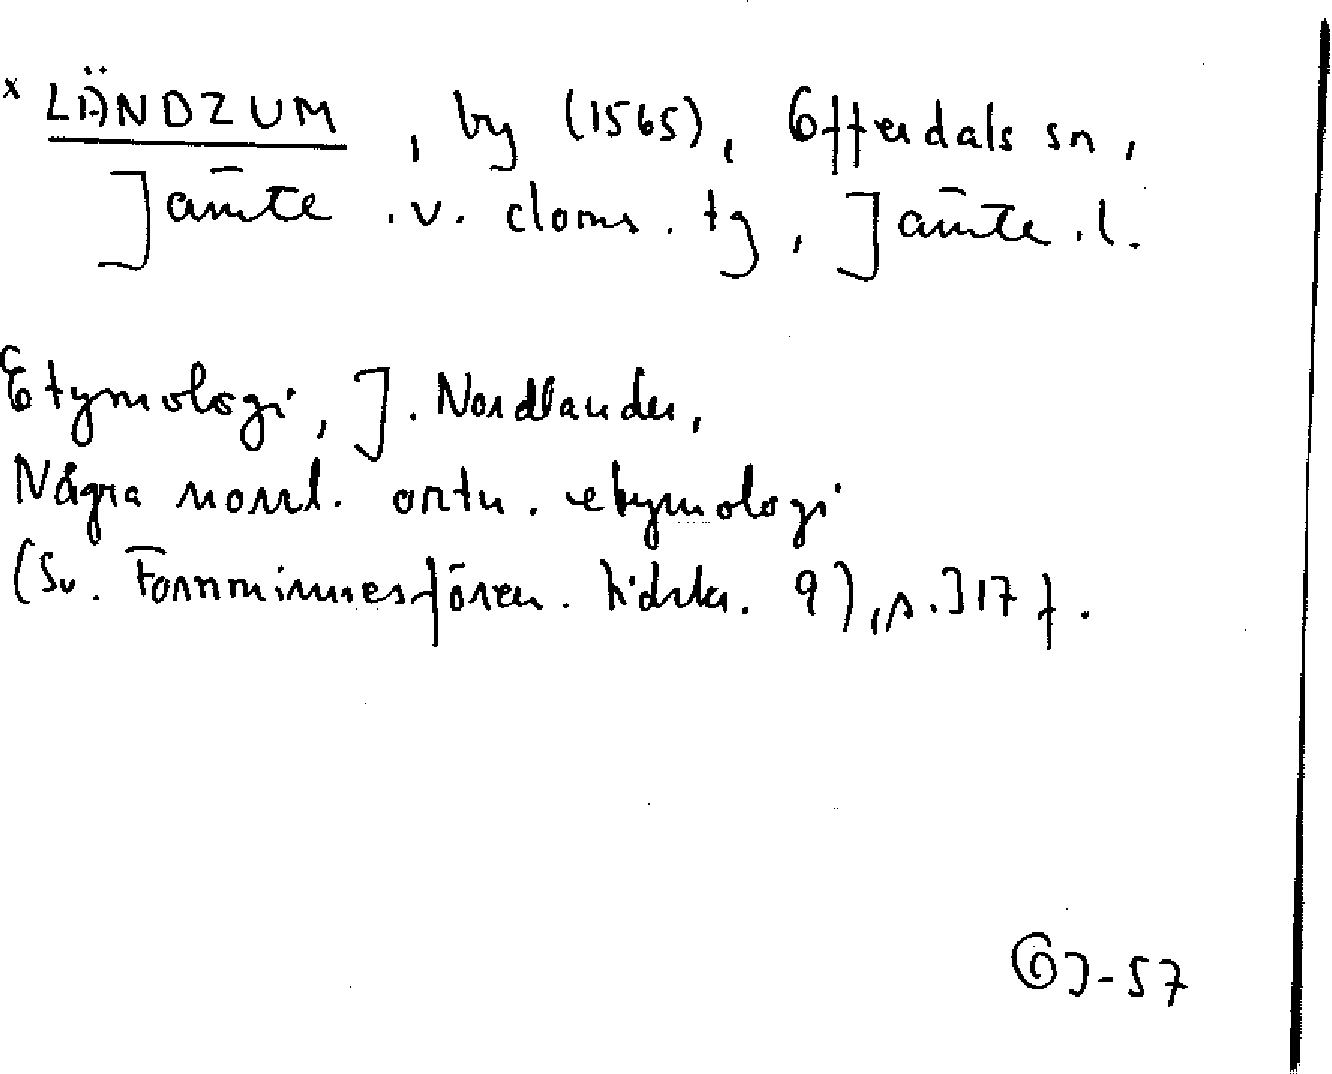 x LÄNDZUM, by (1565), Offerdals sn,
Jämte. v. doms. tg, Jämte. l.
Etymologi, J. Nordlander,
Några norrl. ortn. etymologi
(Sv. Fornminnesfören. tidskr. 9), s. 317 f.
GJ-57